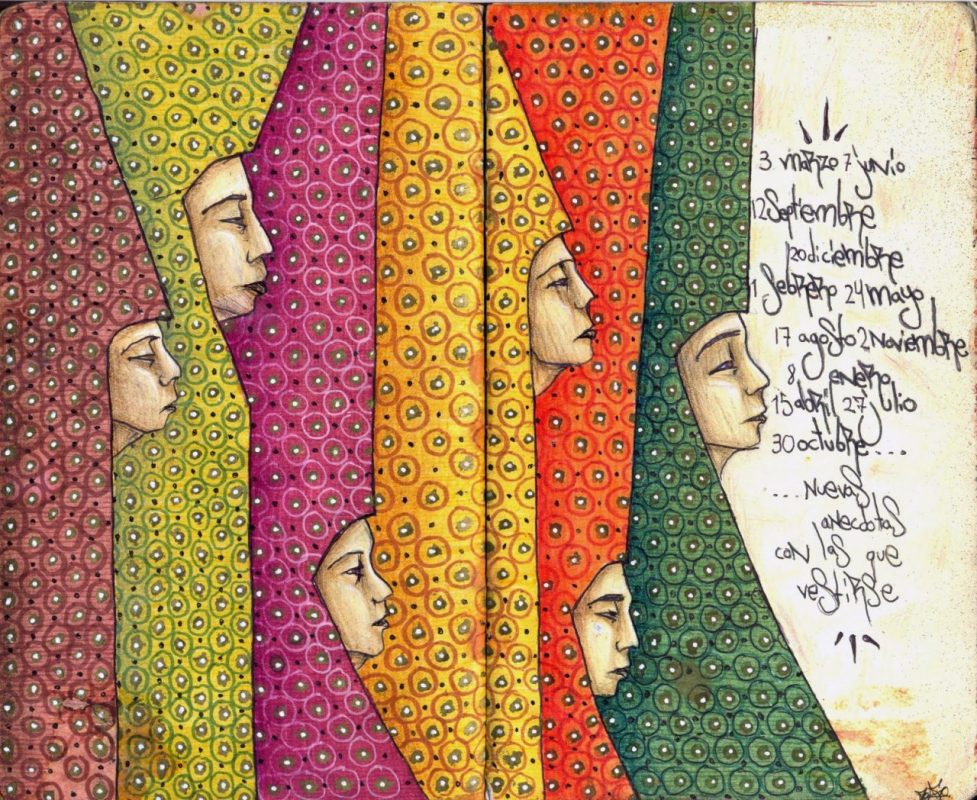 3 marzo 7 junio
12 Septiembre
20 diciembre
1 febrero 24 mayo
17 agosto 2 Noviembre
8 enero
15 abril 27 julio
30 octubre....
....Nuevas
anecdotas
con las que
vestirse